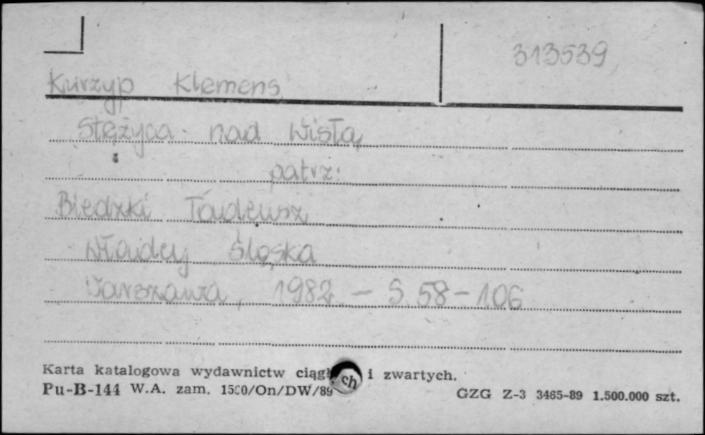 313539
Kurzyp Klemens
Stężyca nad Wisłą
patrz:
Biedzki Tadeusz
Władcy Śląska
Warszawa, 1982 - S. 58-106
Karta katalogowa wydawnictw i zwartych.
Pu-B-144 W.A. zam. 1500/On/DW/89
GZG Z-3 3465-89 1.500.000 szt.